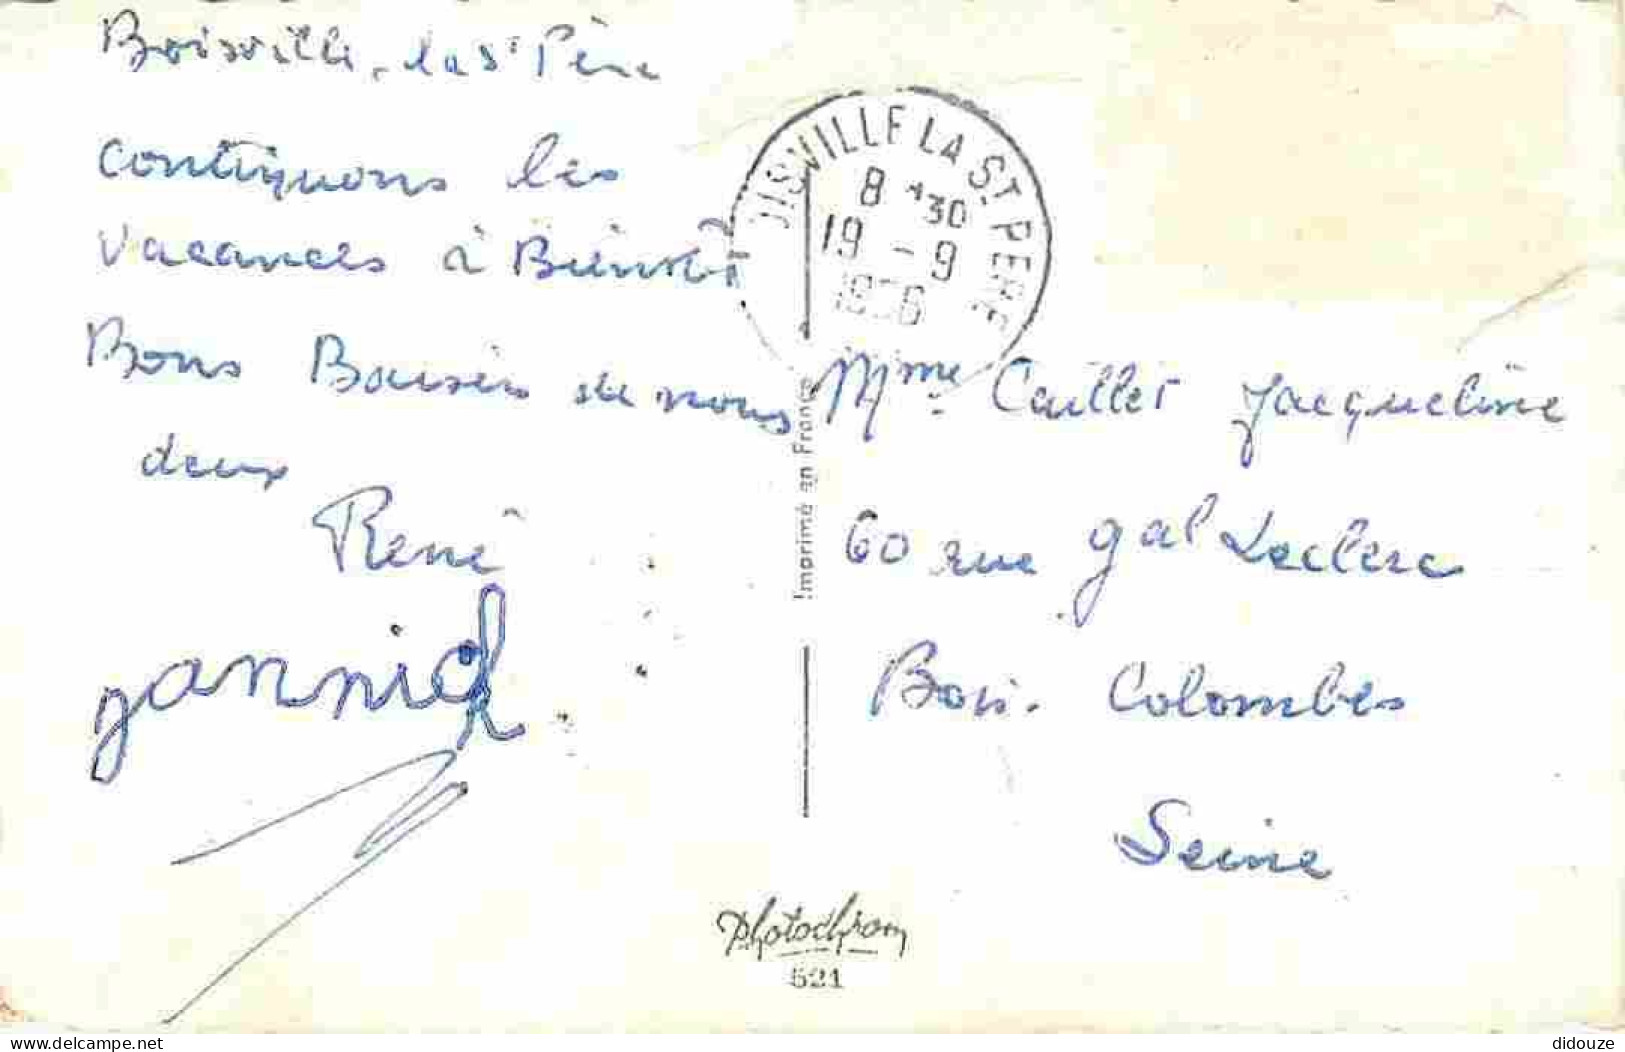 Boisville-la St Père
contiquons les
vacances à Bientôt
Bons Baisers de nous
deux
René
yannick
JISVILLE LA ST. PERE
8 H 30
19 - 9
Imprimé en France
Mme Caillet Jacqueline
60 rue gal Leclerc
Bois-Colombes
Seine
Photochrom
521
delcampe.net
didouze